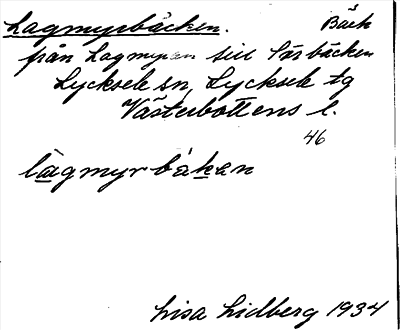 Lagmyrbäcken. Bäck
från Lagmyran till Sörbäcken
Lycksele sn, Lycksele tg
Västerbottens l.
46
làgmyrbäkan
Lisa Lidberg 1934